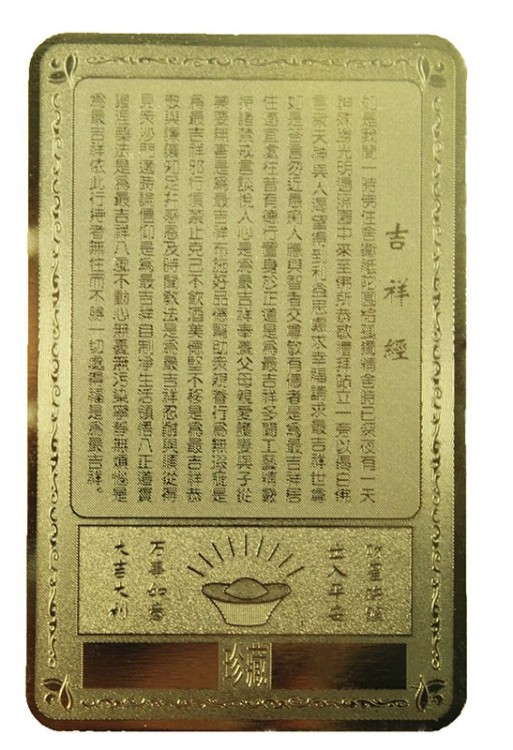 吉祥經
如是我聞一時佛住舍衛祇陀園給孤獨精舍時已深夜有一天
殊勝光明遍照園中來至佛所恭敬禮拜站立一旁以偈白佛
言眾天神與人渴望得利益思慮求幸福請求最吉祥世尊
如是答言勿近愚痴人應與智者交尊敬有德者是為最吉祥居
住適宜處往昔有德行置身於正道是為最吉祥多聞工藝精嚴
持諸禁戒言談悅人心是為最吉祥奉養父母親愛護妻與子從
業要無害是為最吉祥布施好品德幫助眾親眷行為無瑕疵是
為最吉祥邪行須禁止克己不飲酒美德堅不移是為最吉祥恭
敬與謙讓知足并感恩及時聞教法是為最吉祥忍耐與順從得
見眾沙門適時論信仰是為最吉祥自制淨生活領悟八正道實
證涅槃法是為最吉祥八風不動心無憂無污染寧靜無煩惱是
為最吉祥依此行持者無往而不勝一切處得福是為最吉祥。
出入平安
万事如意
大吉大利
珍藏